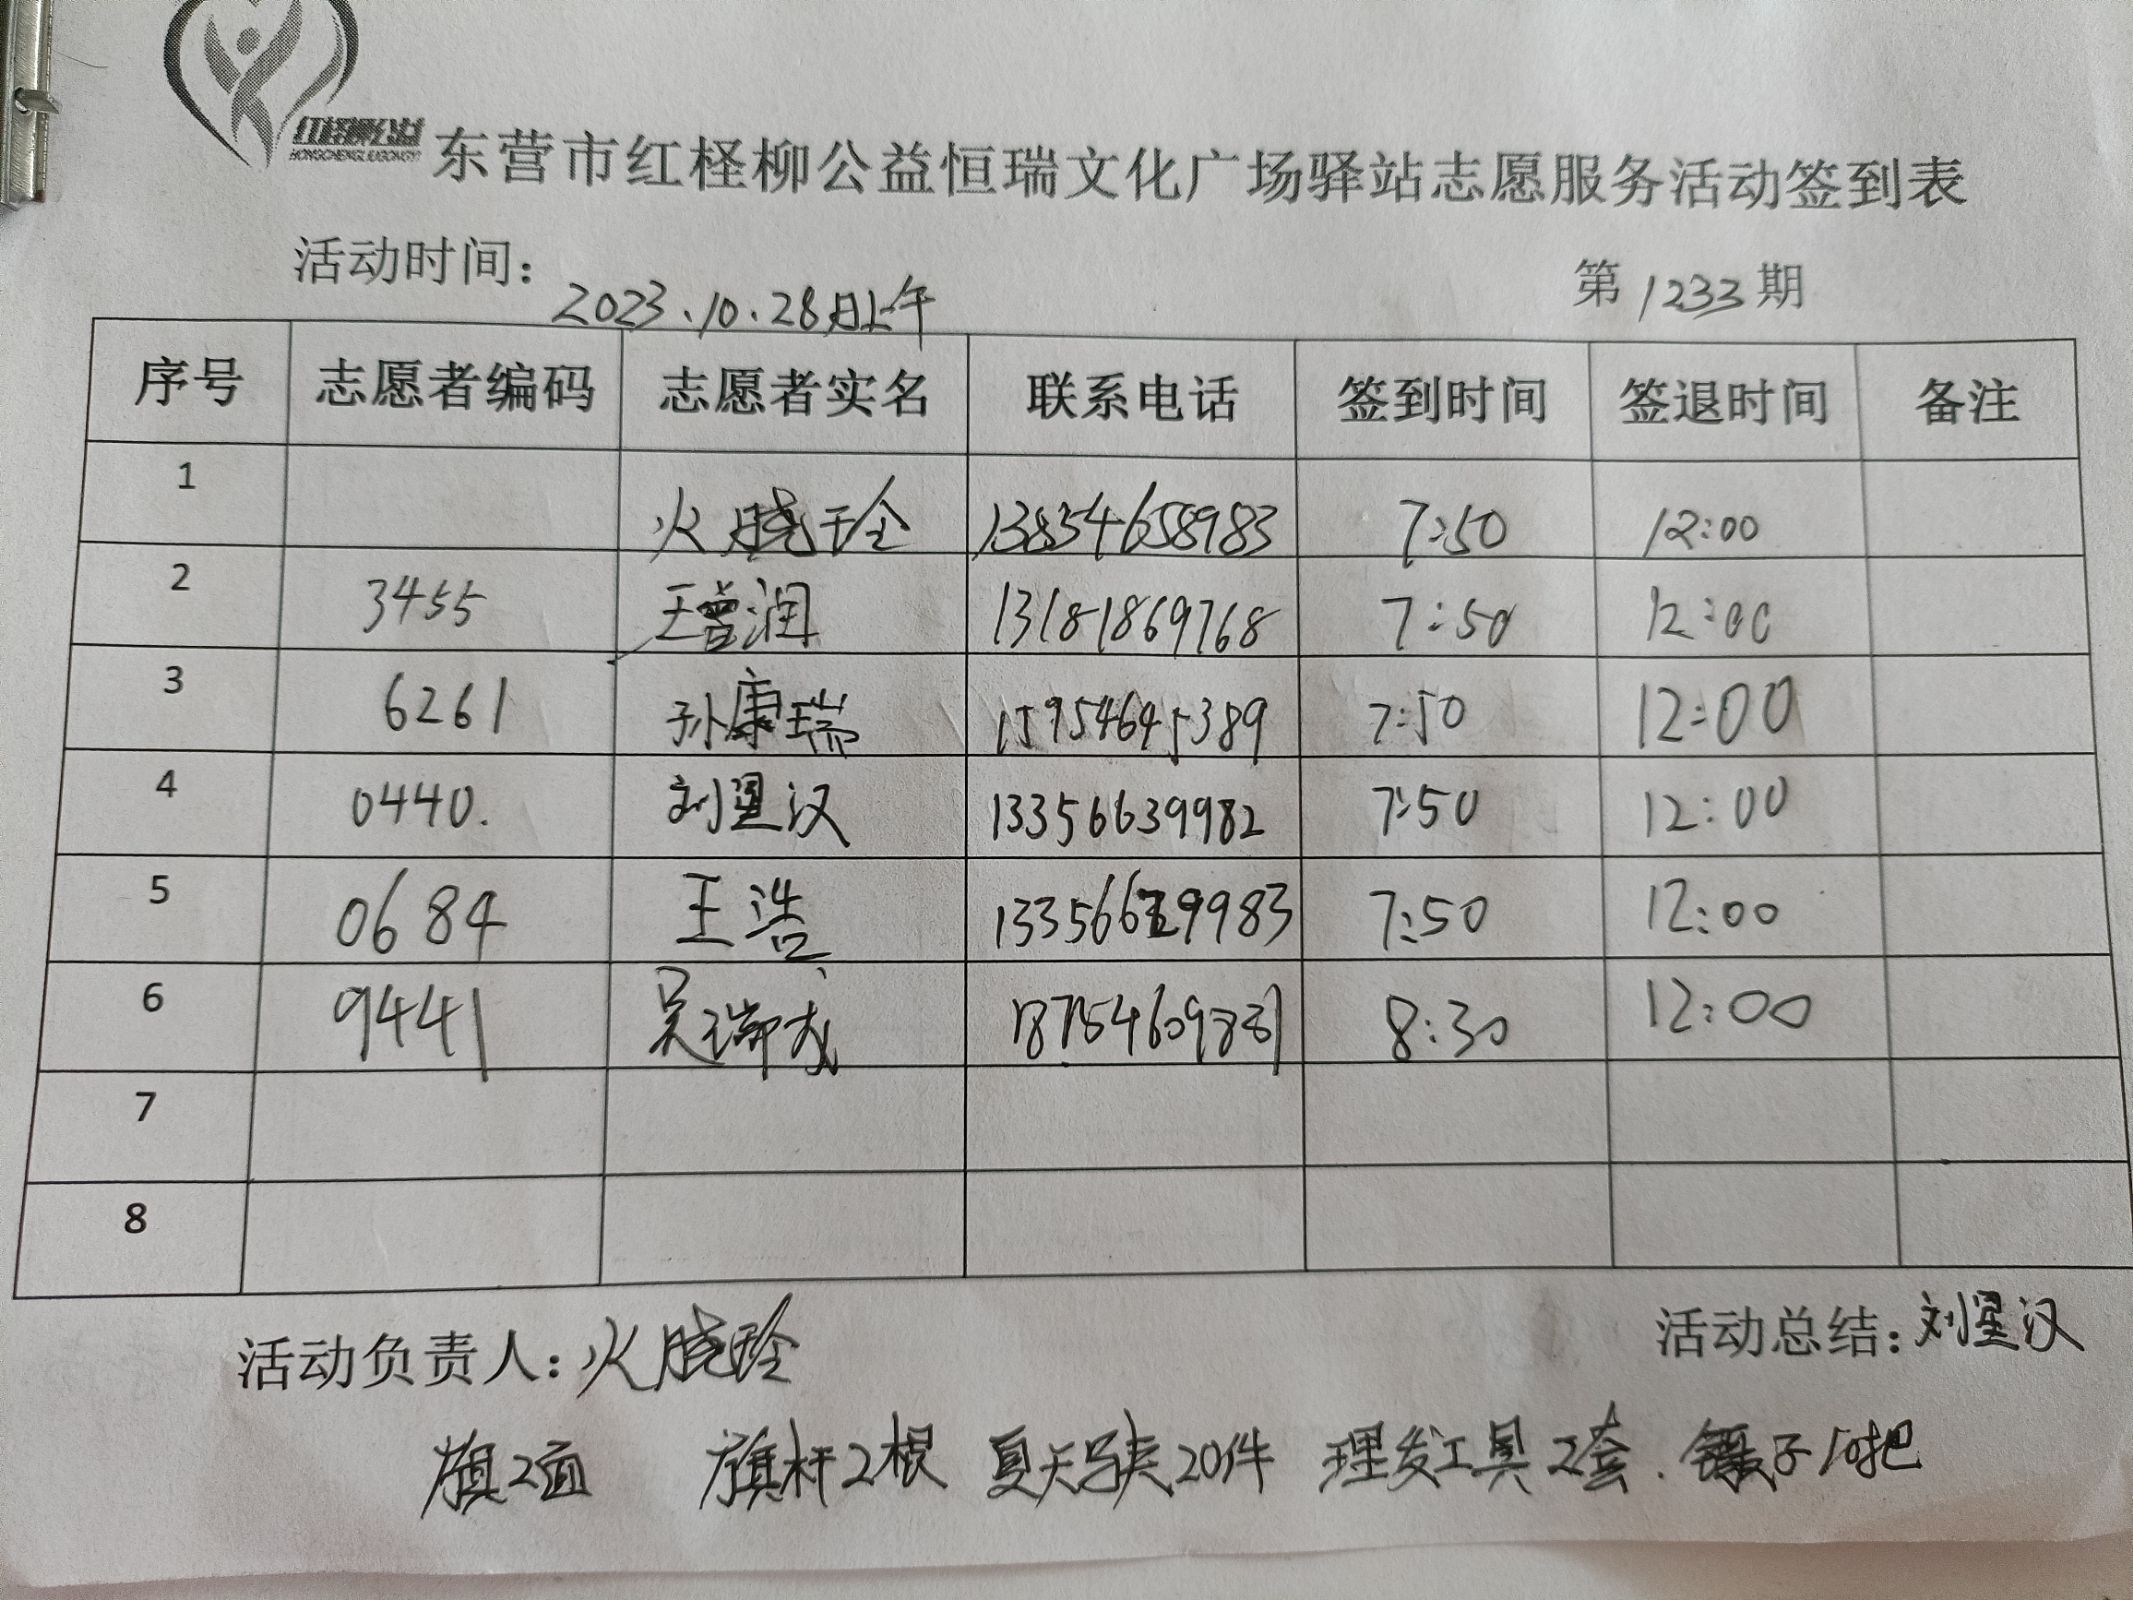 红柽柳公益
HONGCHENGLIUGONGYI
东营市红柽柳公益恒瑞文化广场驿站志愿服务活动签到表
活动时间：2023.10.28日上午 第1233期
序号 志愿者编码 志愿者实名 联系电话 签到时间 签退时间 备注
1 火晓玲 13834658983 7:50 12:00
2 3455 王曾润 13181869768 7:50 12:00
3 6261 孙康瑞 15954645389 7:50 12:00
4 0440. 刘星汉 13356639982 7:50 12:00
5 0684 王浩 7:50 12:00
6 9441 吴瑞成 8:30 12:00
7
8
活动负责人：火晓玲 活动总结：刘星汉
旗2面 旗杆2根 夏天马夹20件 理发工具2套. 镊子10把